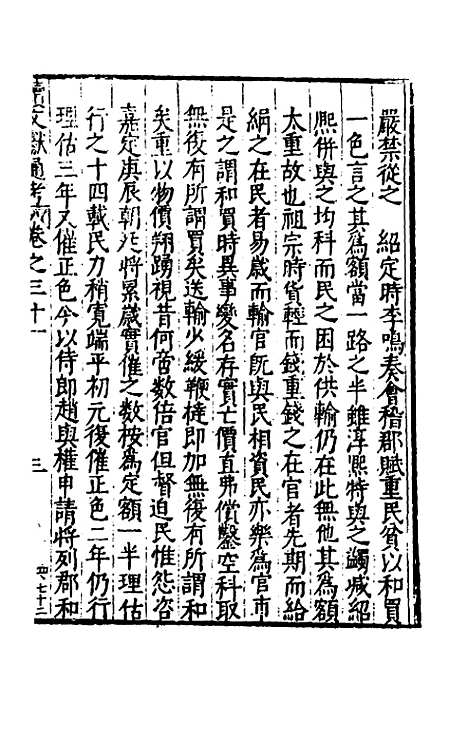 嚴禁從之　紹定時李鳴奏會稽郡賦重民貧以和買
一色言之其爲額當一路之半雖淳熙特與之蠲减紹
熙併與之均科而民之困於供輸仍在此無他其爲額
太重故也祖宗時貨輕而錢重錢之在官者先期而給
絹之在民者易歲而輸官旣與民相資民亦樂爲官市
是之謂和買時異事變名存實亡價直弗償鑿空科取
無復有所謂買矣送輸少緩鞭撻即加無復有所謂和
矣重以物價翔踴視昔何啻數倍官但督迫民惟怨咨
嘉定庚辰朝廷將累歲實催之數桉爲定額一半理估
行之十四載民力稍寬端平初元復催正色二年仍行
理估三年又催正色今以侍郎趙與權申請將列郡和
續文獻通考 卷之三十一　三